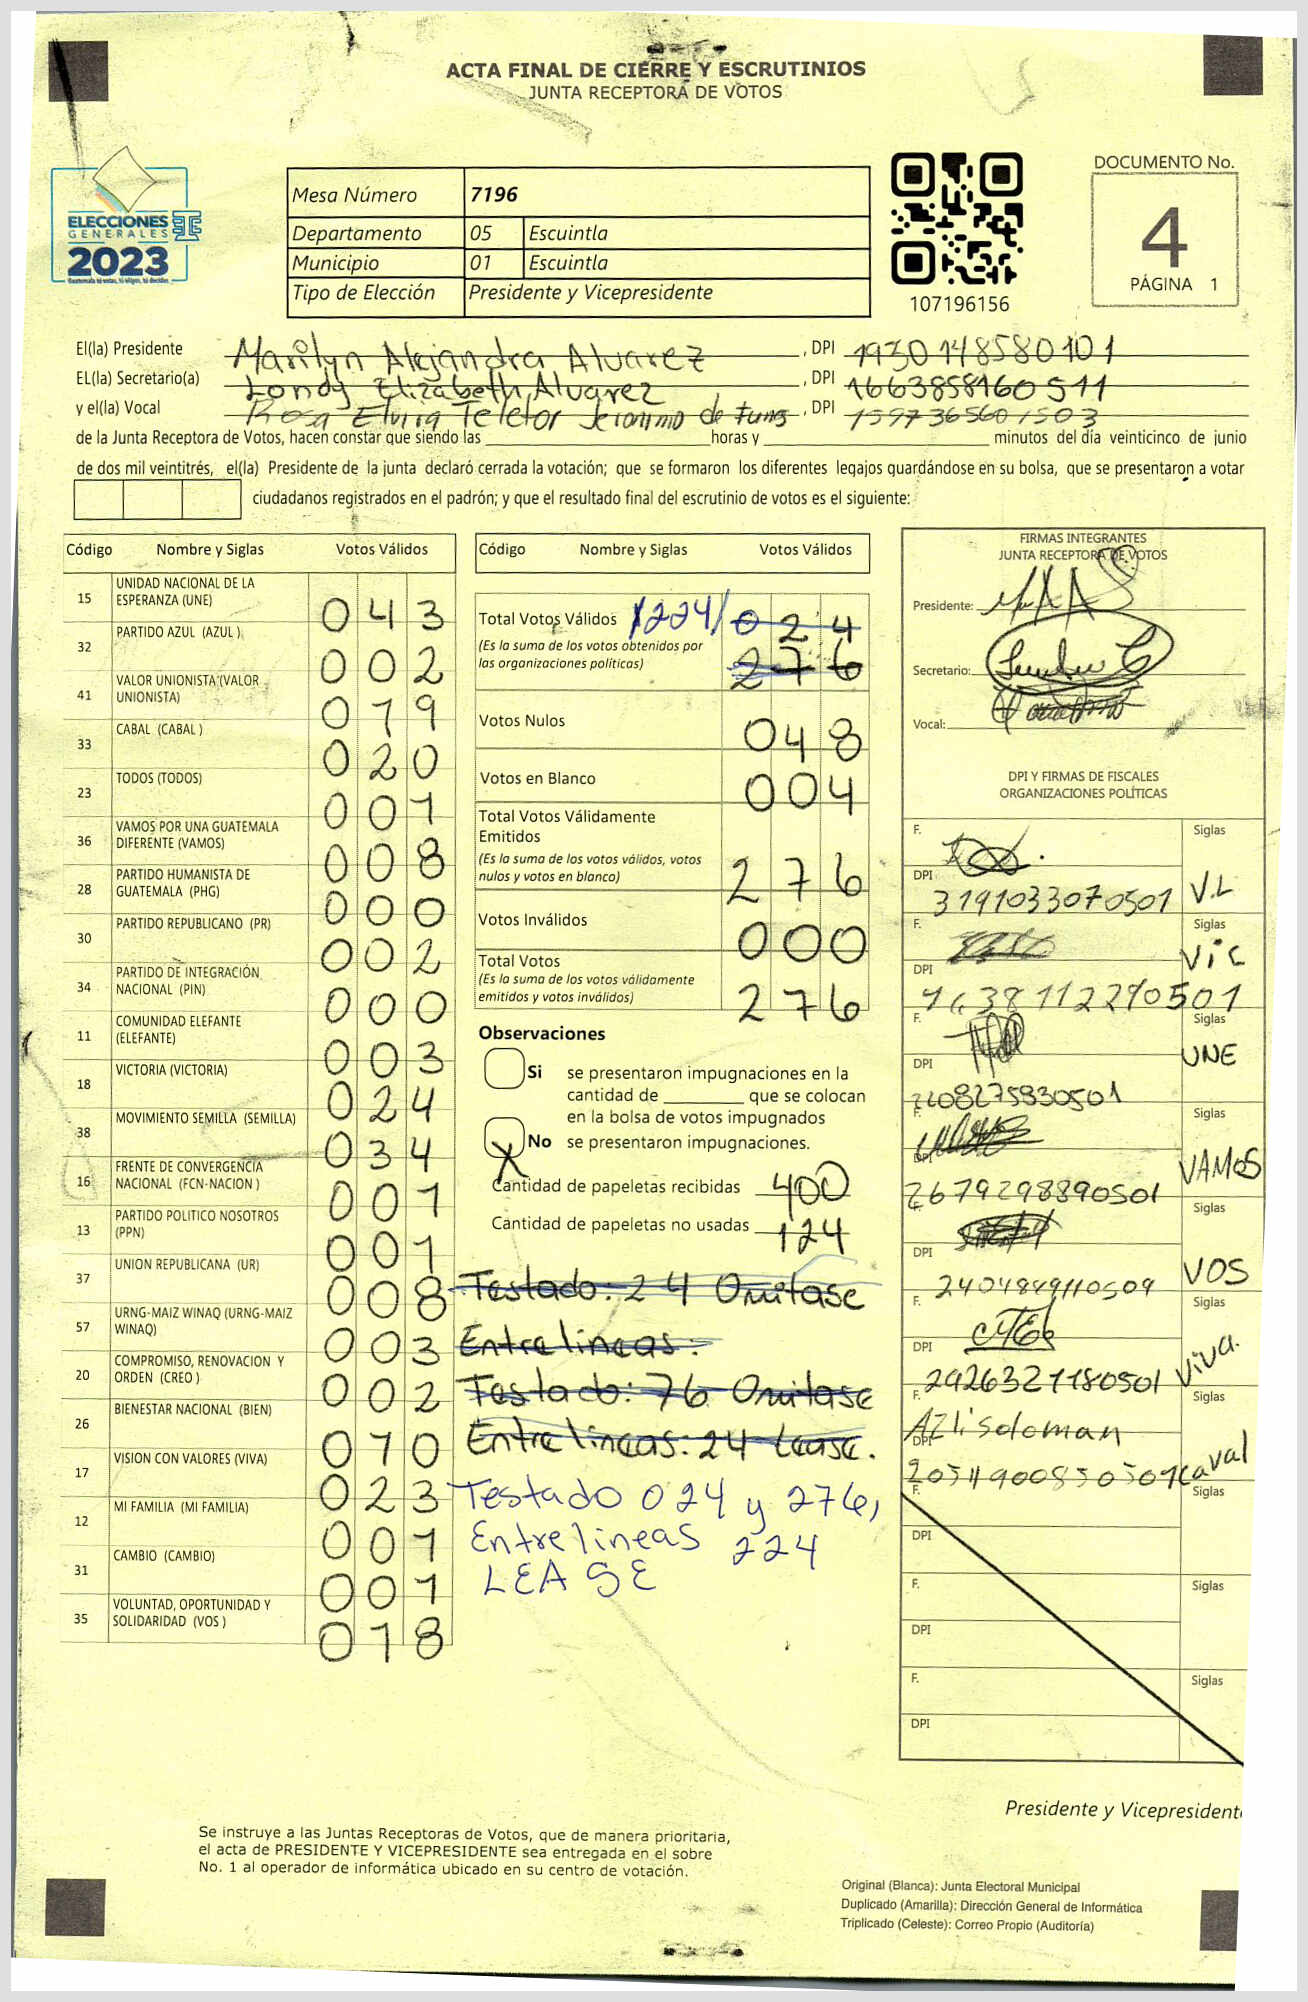 ACTA FINAL DE CIERRE Y ESCRUTINIOS
JUNTA RECEPTORA DE VOTOS
ELECCIONES
GENERALES
2023
Mesa Número 7196
Departamento 05 Escuintla
Municipio 01 Escuintla
Tipo de Elección Presidente y Vicepresidente
107196156
DOCUMENTO No.
4
PÁGINA 1
El(la) Presidente Marilyn Alejandra Alvarez, DPI 1930148580101
EL(la) Secretario(a) Londy Elizabeth Alvarez, DPI 1663858160511
y el(la) Vocal Rosa Elvira Teletor Jeronimo de Funes, DPI 1597365601503
de la Junta Receptora de Votos, hacen constar que siendo las horas y minutos del día veinticinco de junio
de dos mil veintitrés, el(la) Presidente de la junta declaró cerrada la votación; que se formaron los diferentes legajos guardándose en su bolsa, que se presentaron a votar
ciudadanos registrados en el padrón; y que el resultado final del escrutinio de votos es el siguiente:
Código Nombre y Siglas Votos Válidos
15 UNIDAD NACIONAL DE LA ESPERANZA (UNE) 043
32 PARTIDO AZUL (AZUL ) 002
41 VALOR UNIONISTA (VALOR UNIONISTA) 019
33 CABAL (CABAL ) 020
23 TODOS (TODOS) 001
36 VAMOS POR UNA GUATEMALA DIFERENTE (VAMOS) 008
28 PARTIDO HUMANISTA DE GUATEMALA (PHG) 000
30 PARTIDO REPUBLICANO (PR) 002
34 PARTIDO DE INTEGRACIÓN NACIONAL (PIN) 000
11 COMUNIDAD ELEFANTE (ELEFANTE) 003
18 VICTORIA (VICTORIA) 024
38 MOVIMIENTO SEMILLA (SEMILLA) 034
16 FRENTE DE CONVERGENCIA NACIONAL (FCN-NACION ) 001
13 PARTIDO POLITICO NOSOTROS (PPN) 001
37 UNION REPUBLICANA (UR) 008
57 URNG-MAIZ WINAQ (URNG-MAIZ WINAQ) 003
20 COMPROMISO, RENOVACION Y ORDEN (CREO ) 002
26 BIENESTAR NACIONAL (BIEN) 010
17 VISION CON VALORES (VIVA) 023
12 MI FAMILIA (MI FAMILIA) 001
31 CAMBIO (CAMBIO) 001
35 VOLUNTAD, OPORTUNIDAD Y SOLIDARIDAD (VOS ) 018
Código Nombre y Siglas Votos Válidos
Total Votos Válidos /224/ 024
(Es la suma de los votos obtenidos por
las organizaciones políticas) 276
Votos Nulos 048
Votos en Blanco 004
Total Votos Válidamente
Emitidos
(Es la suma de los votos válidos, votos
nulos y votos en blanco) 276
Votos Inválidos 000
Total Votos
(Es la suma de los votos válidamente
emitidos y votos inválidos) 276
Observaciones
Si se presentaron impugnaciones en la
cantidad de que se colocan
en la bolsa de votos impugnados
X No se presentaron impugnaciones.
Cantidad de papeletas recibidas 400
Cantidad de papeletas no usadas 124
Testado: 24 Omitase
Entrelineas:
Testado: 76 Omitase
Entrelineas: 24 Lease.
Testado 024 y 276,
Entrelineas 224
LEASE
FIRMAS INTEGRANTES
JUNTA RECEPTORA DE VOTOS
Presidente:
Secretario:
Vocal:
DPI Y FIRMAS DE FISCALES
ORGANIZACIONES POLÍTICAS
F. Siglas
DPI 3191033070501 V.L
F. Siglas
DPI VIC
F. Siglas
DPI UNE
F. Siglas
DPI 2679298890501 VAMOS
F. Siglas
DPI 2404849110509 VOS
F. Siglas
DPI 2926321180501 Viva.
F. Azli Soloman Siglas
DPI 2051190085050 Caval
F. Siglas
DPI
F. Siglas
DPI
F. Siglas
DPI
Presidente y Vicepresident
Se instruye a las Juntas Receptoras de Votos, que de manera prioritaria,
el acta de PRESIDENTE Y VICEPRESIDENTE sea entregada en el sobre
No. 1 al operador de informática ubicado en su centro de votación.
Original (Blanca): Junta Electoral Municipal
Duplicado (Amarilla): Dirección General de Informática
Triplicado (Celeste): Correo Propio (Auditoría)